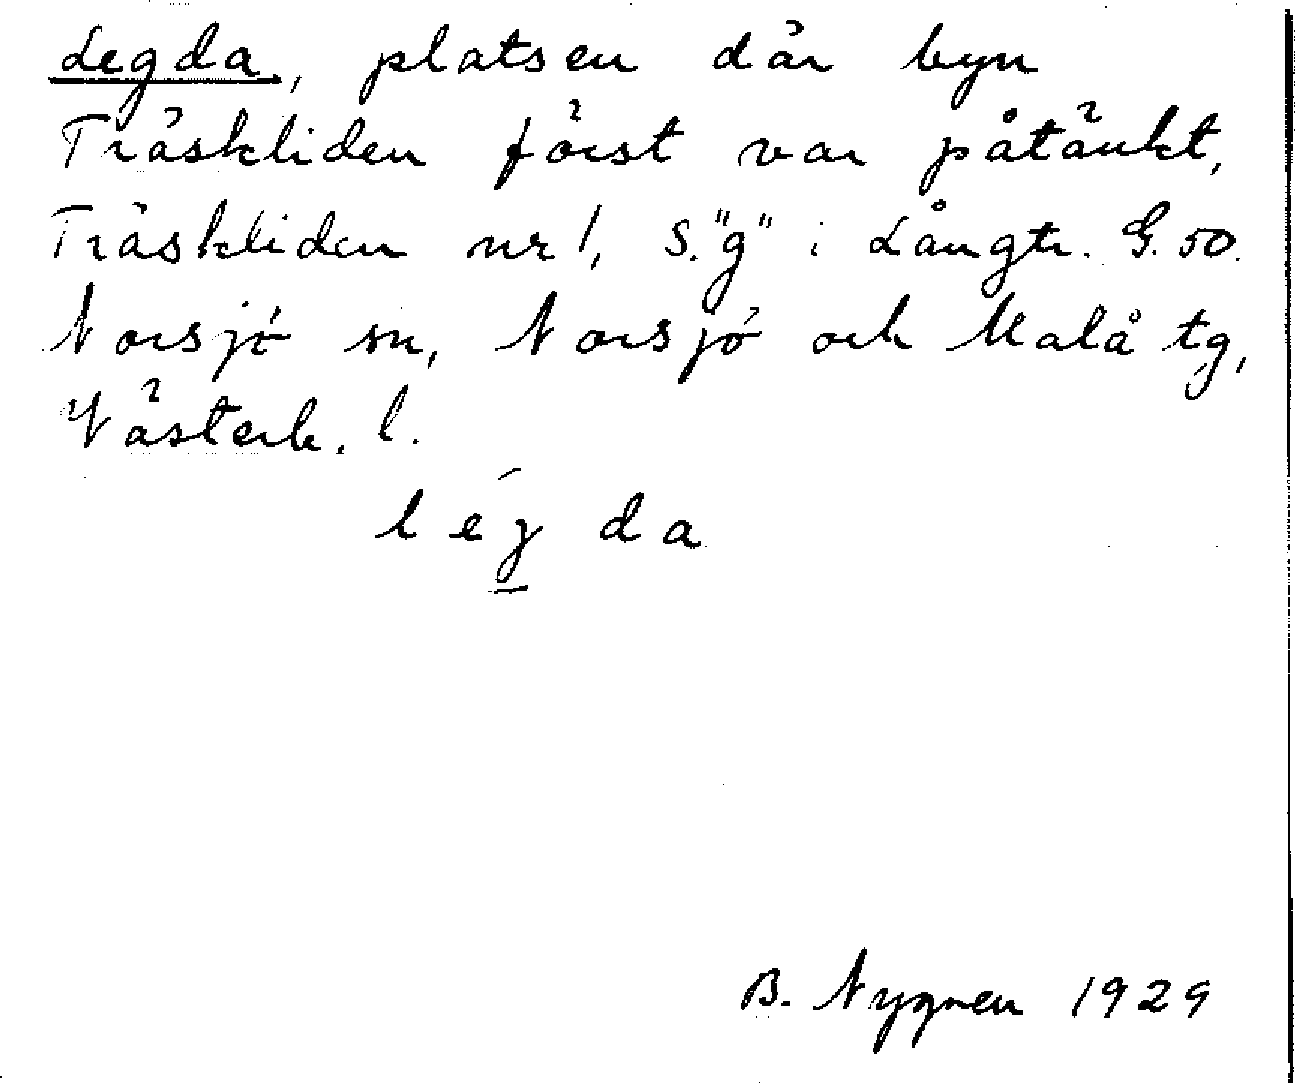 Legda, platsen där byn
Träskliden först var påtänkt,
Träskliden nr 1, S. "g" i Långtr. G. 50.
Norsjö sn, Norsjö och Malå tg,
Västerb. l.
légda
B. Nygren 1929